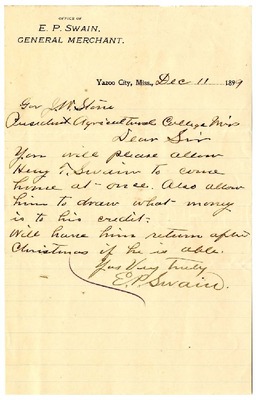 OFFICE OF
E. P. SWAIN,
GENERAL MERCHANT.
Yazoo City, Miss., Dec 11 1899
Gov J. M. Stone
President Agricultural College Miss
Dear Sir
You will please allow
Henry T. Swain to come
home at once. Also allow
him to draw what money
is to his credit.
Will have him return after
Christmas if he is able.
Yos Very truly
E. P. Swain.